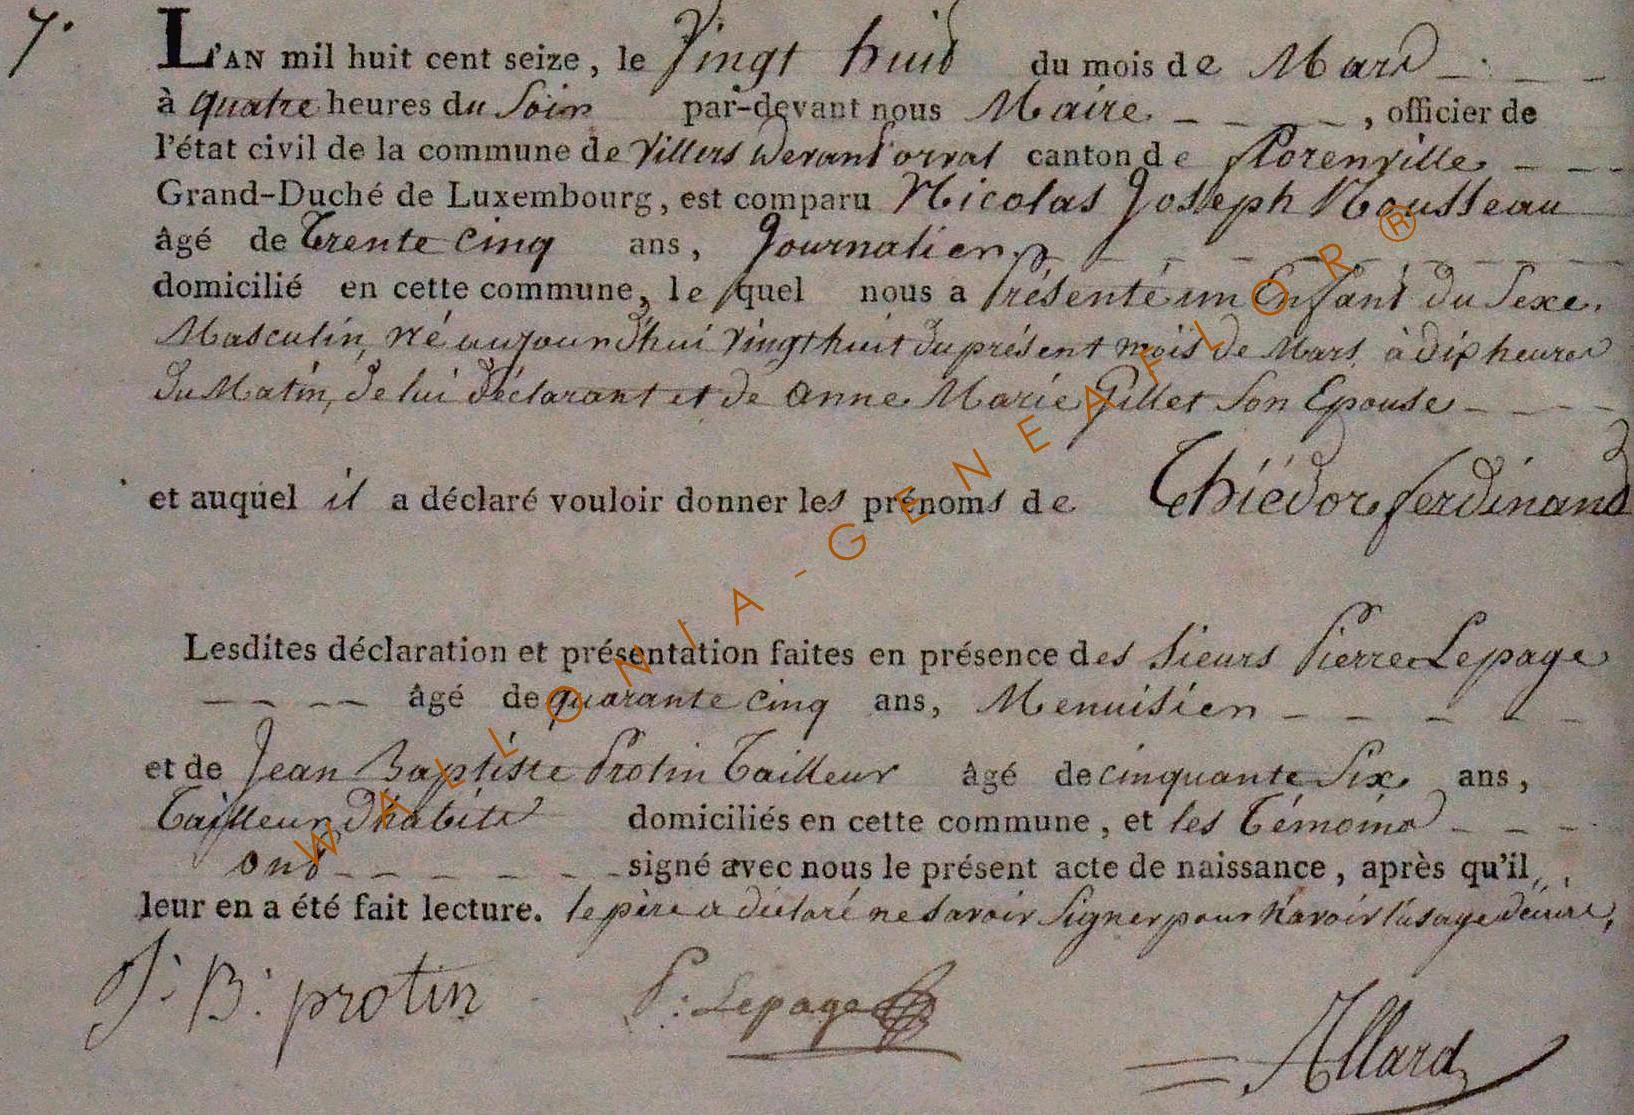 7.
L'AN mil huit cent seize, le Vingt huit du mois de Mars
à quatre heures du Soir par-devant nous Maire, officier de
l'état civil de la commune de Villers Devant orval canton de florenville
Grand-Duché de Luxembourg, est comparu Nicolas Joseph Rousseau
âgé de Trente Cinq ans, Journalier
domicilié en cette commune, le quel nous a Présenté un Enfant du Sexe
Masculin, Né aujourd'hui Vingt huit du présent mois de Mars à dix heures
Du Matin, de lui déclarant et de Anne Marie Gillet Son Epouse
et auquel il a déclaré vouloir donner les prénoms de Thiédor ferdinand
Lesdites déclaration et présentation faites en présence des Sieurs Pierre Lepage
âgé de quarante cinq ans, Menuisier
et de Jean Baptiste Protin Tailleur âgé de cinquante Six ans,
Tailleur D'habits domiciliés en cette commune, et les Témoins
ont signé avec nous le présent acte de naissance, après qu'il
leur en a été fait lecture. le père a déclaré ne Savoir Signer pour N'avoir l'usage d'écrire,
J. B. protin P: Lepage Allard
WALLONIA-GENEAFLOR®